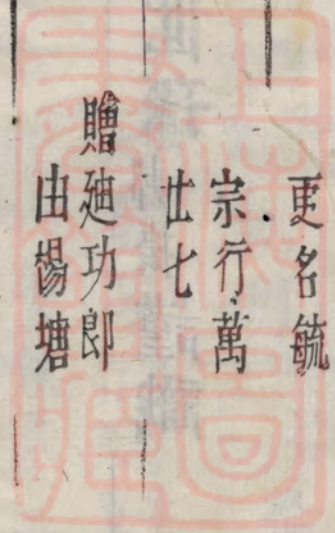 更名毓
宗行萬
廿七
贈廸功郎
由楊塘